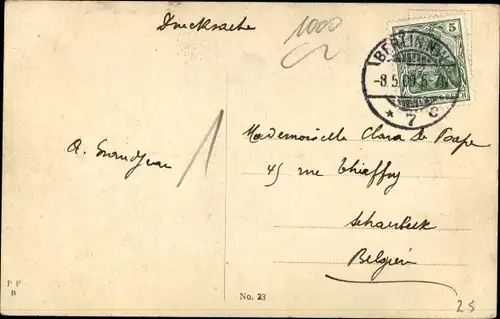 Drucksache
1000
5
BERLIN N.W.
-8.5.09. 6-7N.
* 7 c
Mademoiselle Clara De Paepe
A. Grandjean
45 rue Thieffry
Schaerbeek
Belgien
P F
B
No. 23
25